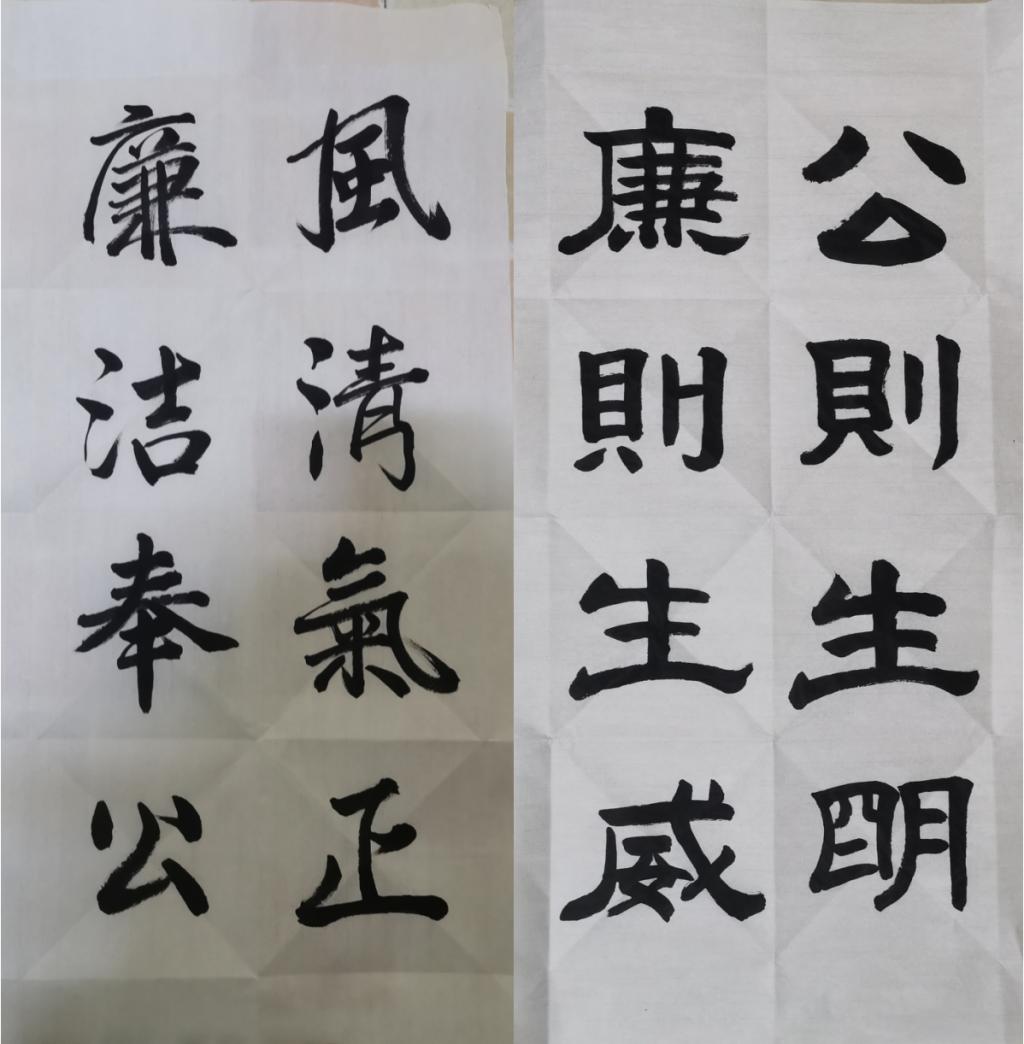 公則生明
廉則生威
風清氣正
廉洁奉公